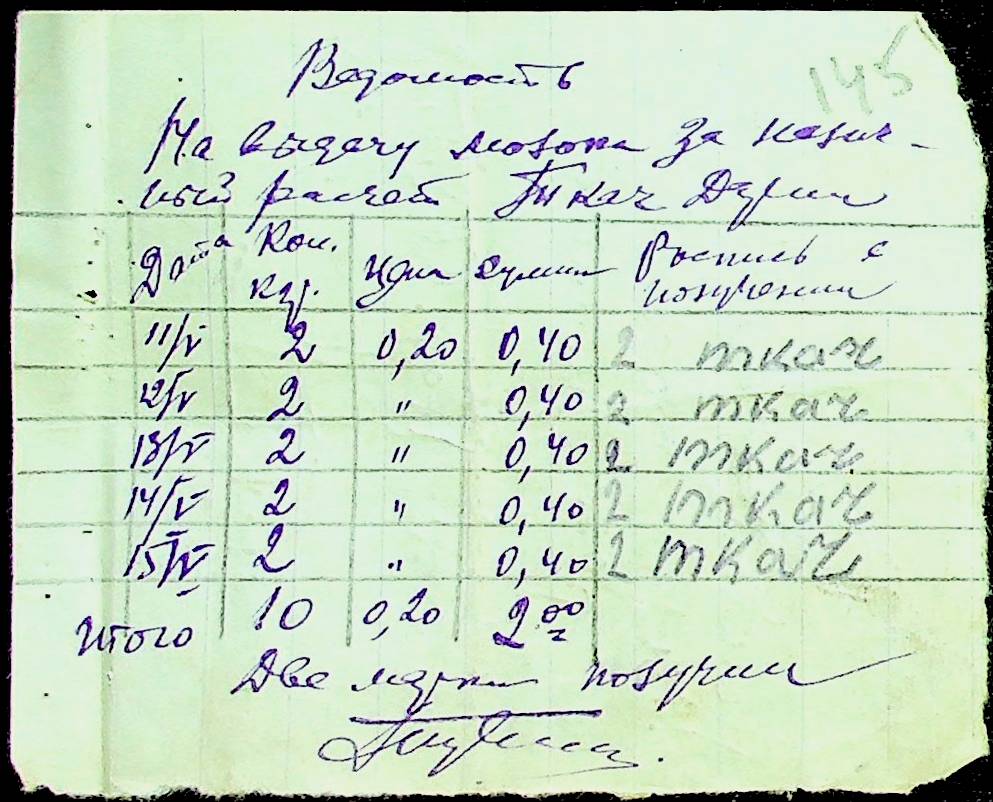 145
Ведомость
На выдачу молока за налич-
ный расчет Ткач Дарии
Дата Кол. кур. Цена Сумма Роспись в получении
11/V 2 0,20 0,40 2 ткач
12/V 2 " 0,40 2 ткач
13/V 2 " 0,40 2 ткач
14/V 2 " 0,40 2 ткач
15/V 2 " 0,40 2 ткач
Итого 10 0,20 2 00
Две марки получил